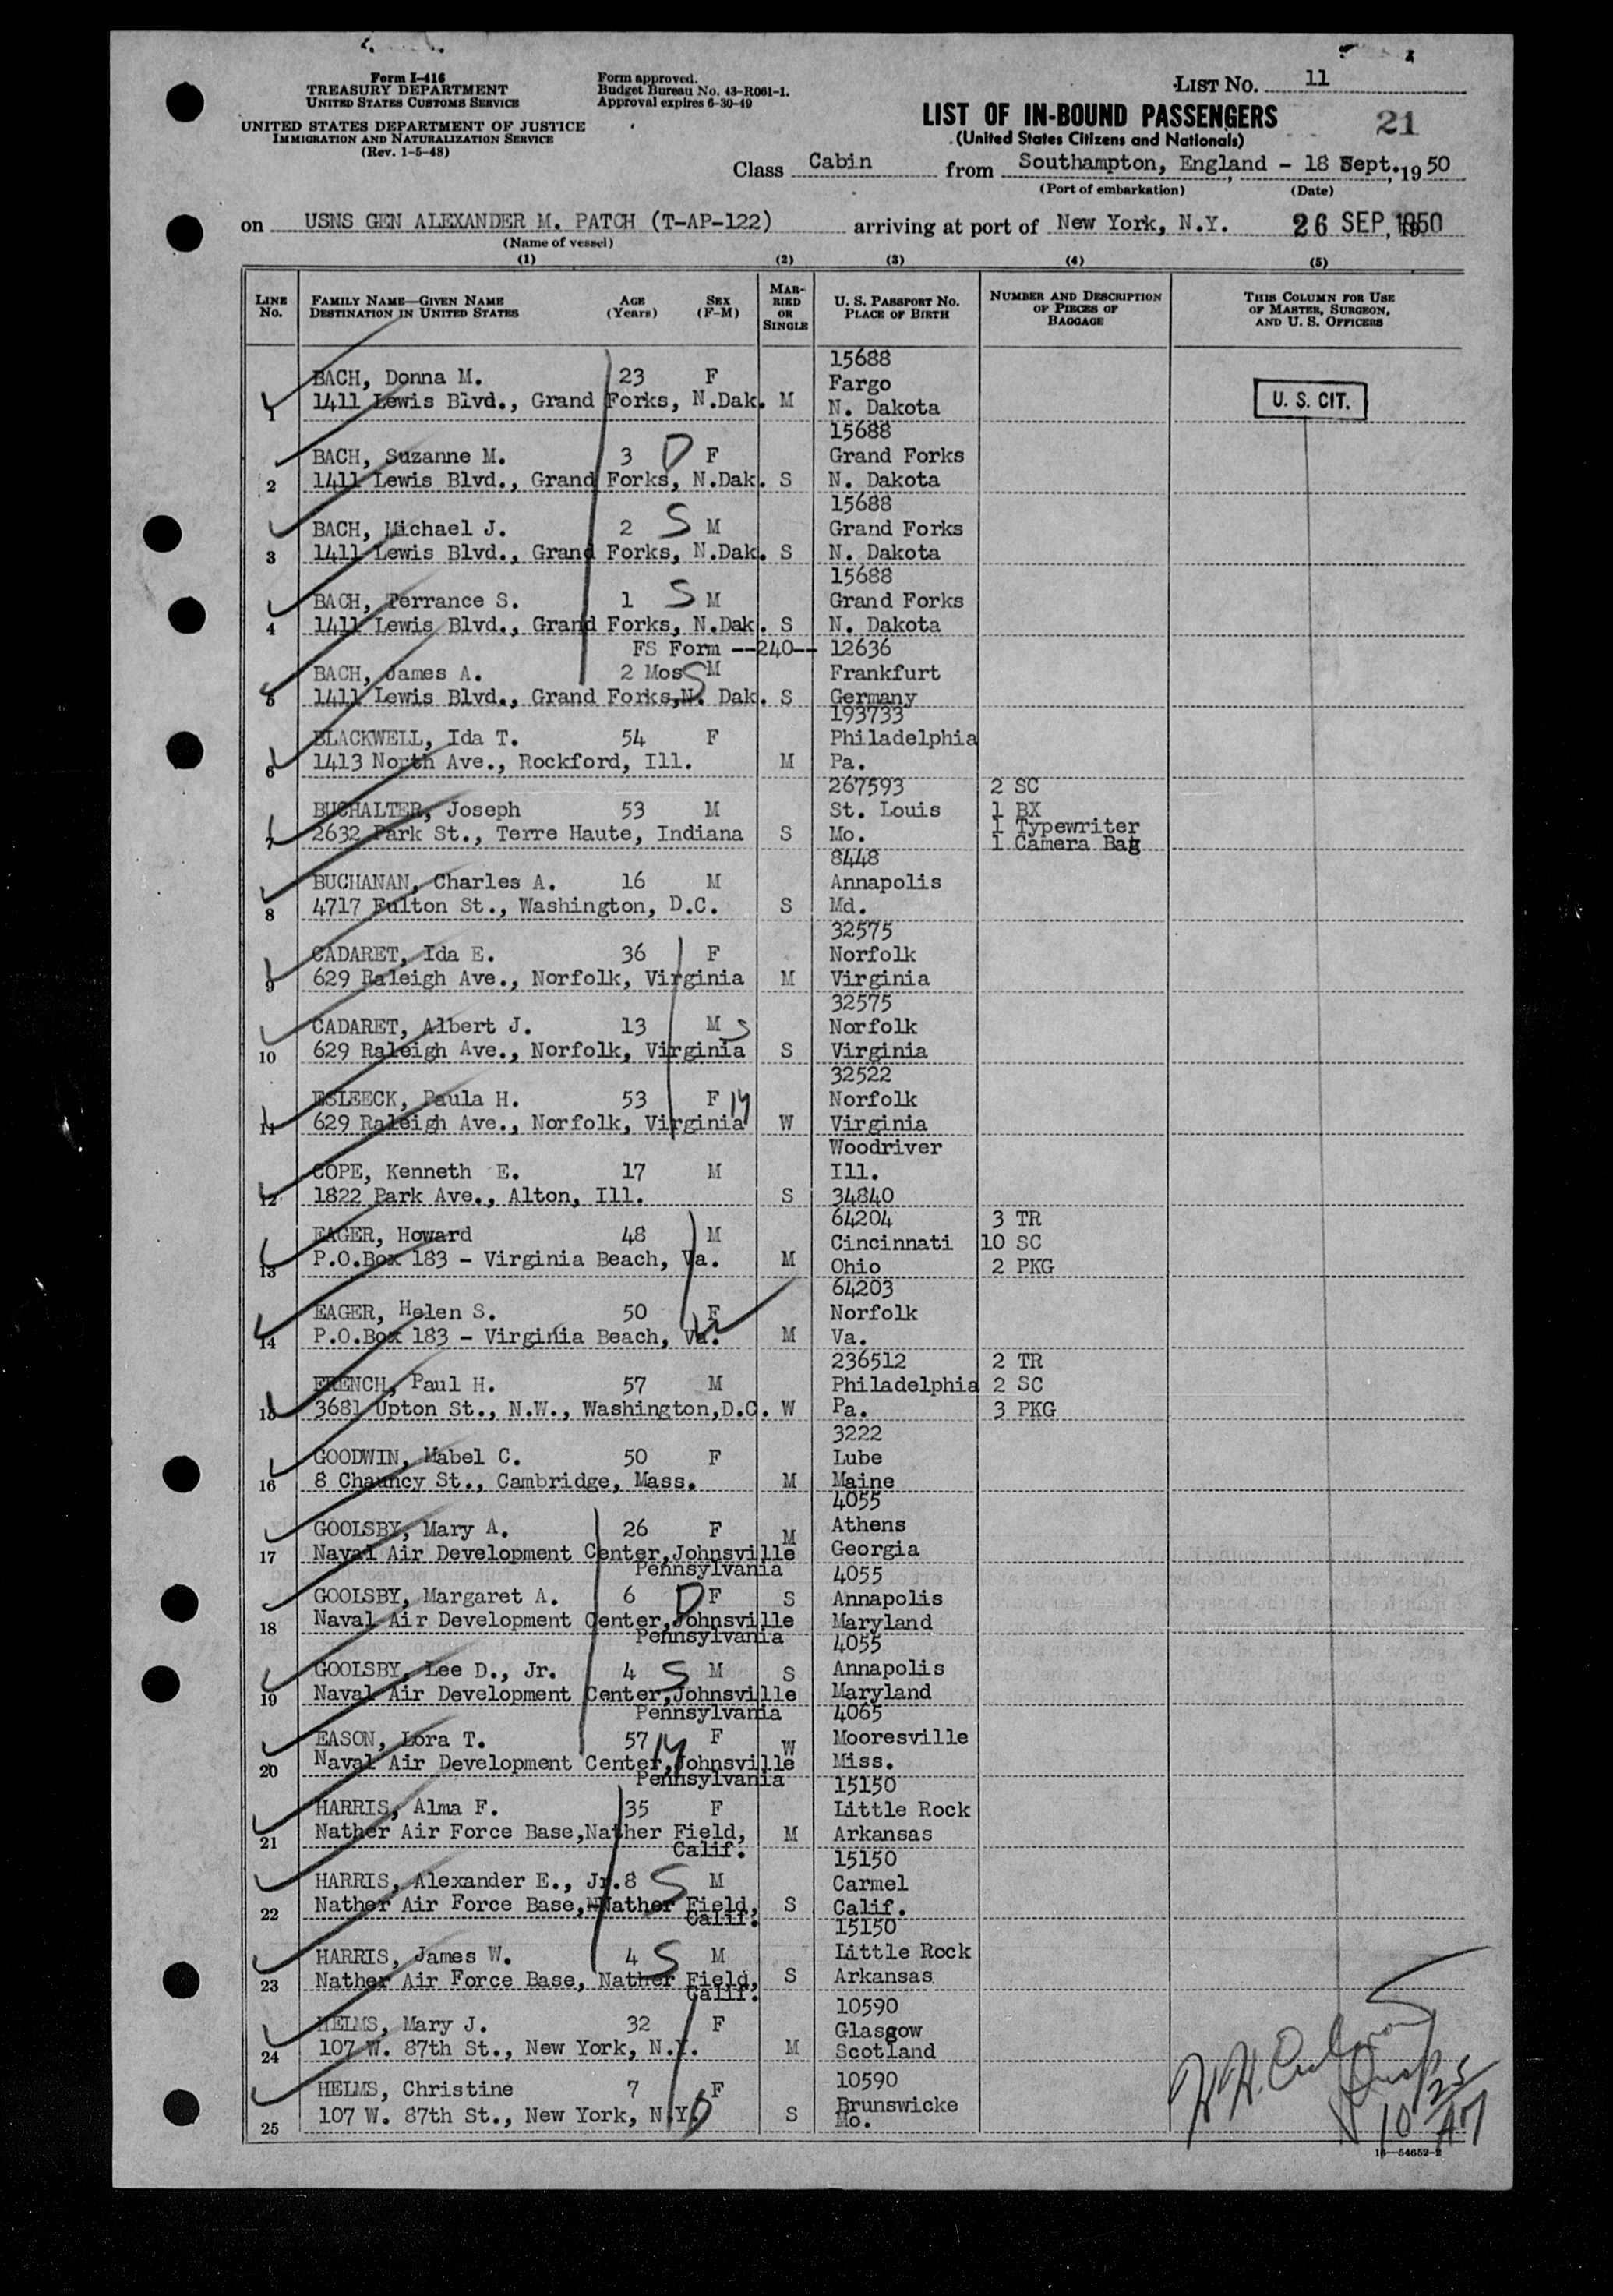 Form I-416
TREASURY DEPARTMENT
UNITED STATES CUSTOMS SERVICE
UNITED STATES DEPARTMENT OF JUSTICE
IMMIGRATION AND NATURALIZATION SERVICE
(Rev. 1-5-48)
Form approved.
Budget Bureau No. 43-R061-1.
Approval expires 6-30-49
LIST NO. 11
LIST OF IN-BOUND PASSENGERS
21
(United States Citizens and Nationals)
Class Cabin from Southampton, England - 18 Sept., 1950
(Port of embarkation) (Date)
on USNS GEN ALEXANDER M. PATCH (T-AP-122) arriving at port of New York, N.Y. 26 SEP, 1950
(Name of vessel)
(1) (2) (3) (4) (5)
LINE No. FAMILY NAME—GIVEN NAME DESTINATION IN UNITED STATES AGE (Years) SEX (F-M) MARRIED OR SINGLE U. S. PASSPORT NO. PLACE OF BIRTH NUMBER AND DESCRIPTION OF PIECES OF BAGGAGE THIS COLUMN FOR USE OF MASTER, SURGEON, AND U. S. OFFICERS
15688
BACH, Donna M. 23 F Fargo
1 1411 Lewis Blvd., Grand Forks, N.Dak. M N. Dakota U. S. CIT.
15688
BACH, Suzanne M. 3 D F Grand Forks
2 1411 Lewis Blvd., Grand Forks, N.Dak. S N. Dakota
15688
BACH, Michael J. 2 S M Grand Forks
3 1411 Lewis Blvd., Grand Forks, N.Dak. S N. Dakota
15688
BACH, Terrance S. 1 S M Grand Forks
4 1411 Lewis Blvd., Grand Forks, N.Dak. S N. Dakota
FS Form --240-- 12636
BACH, James A. 2 Mos S M Frankfurt
5 1411 Lewis Blvd., Grand Forks,N. Dak. S Germany
193733
BLACKWELL, Ida T. 54 F Philadelphia
6 1413 North Ave., Rockford, Ill. M Pa.
267593 2 SC
BUCHALTER, Joseph 53 M St. Louis 1 BX
7 2632 Park St., Terre Haute, Indiana S Mo. 1 Typewriter
1 Camera Bag
8448
BUCHANAN, Charles A. 16 M Annapolis
8 4717 Fulton St., Washington, D.C. S Md.
32575
CADARET, Ida E. 36 F Norfolk
9 629 Raleigh Ave., Norfolk, Virginia M Virginia
32575
CADARET, Albert J. 13 M S Norfolk
10 629 Raleigh Ave., Norfolk, Virginia S Virginia
32522
ESLEECK, Paula H. 53 F M Norfolk
11 629 Raleigh Ave., Norfolk, Virginia W Virginia
Woodriver
COPE, Kenneth E. 17 M Ill.
12 1822 Park Ave., Alton, Ill. S 34840
64204 3 TR
EAGER, Howard 48 M Cincinnati 10 SC
13 P.O.Box 183 - Virginia Beach, Va. M Ohio 2 PKG
64203
EAGER, Helen S. 50 F Norfolk
14 P.O.Box 183 - Virginia Beach, Va. M Va.
236512 2 TR
FRENCH, Paul H. 57 M Philadelphia 2 SC
15 3681 Upton St., N.W., Washington,D.C. W Pa. 3 PKG
3222
GOODWIN, Mabel C. 50 F Lube
16 8 Chauncy St., Cambridge, Mass. M Maine
4055
GOOLSBY, Mary A. 26 F M Athens
17 Naval Air Development Center,Johnsville Georgia
Pennsylvania 4055
GOOLSBY, Margaret A. 6 D F S Annapolis
18 Naval Air Development Center,Johnsville Maryland
Pennsylvania 4055
GOOLSBY, Lee D., Jr. 4 S M S Annapolis
19 Naval Air Development Center,Johnsville Maryland
Pennsylvania 4065
EASON, Lora T. 57 M F W Mooresville
20 Naval Air Development Center,Johnsville Miss.
Pennsylvania 15150
HARRIS, Alma F. 35 F Little Rock
21 Nather Air Force Base,Nather Field, M Arkansas
Calif. 15150
HARRIS, Alexander E., Jr.8 S M Carmel
22 Nather Air Force Base,Nather Field, S Calif.
Calif. 15150
HARRIS, James W. 4 S M Little Rock
23 Nather Air Force Base, Nather Field, S Arkansas
Calif.
10590
HELMS, Mary J. 32 F Glasgow
24 107 W. 87th St., New York, N.Y. M Scotland
10590
HELMS, Christine 7 F Brunswicke
25 107 W. 87th St., New York, N.Y. D S Mo.
16—54652-2